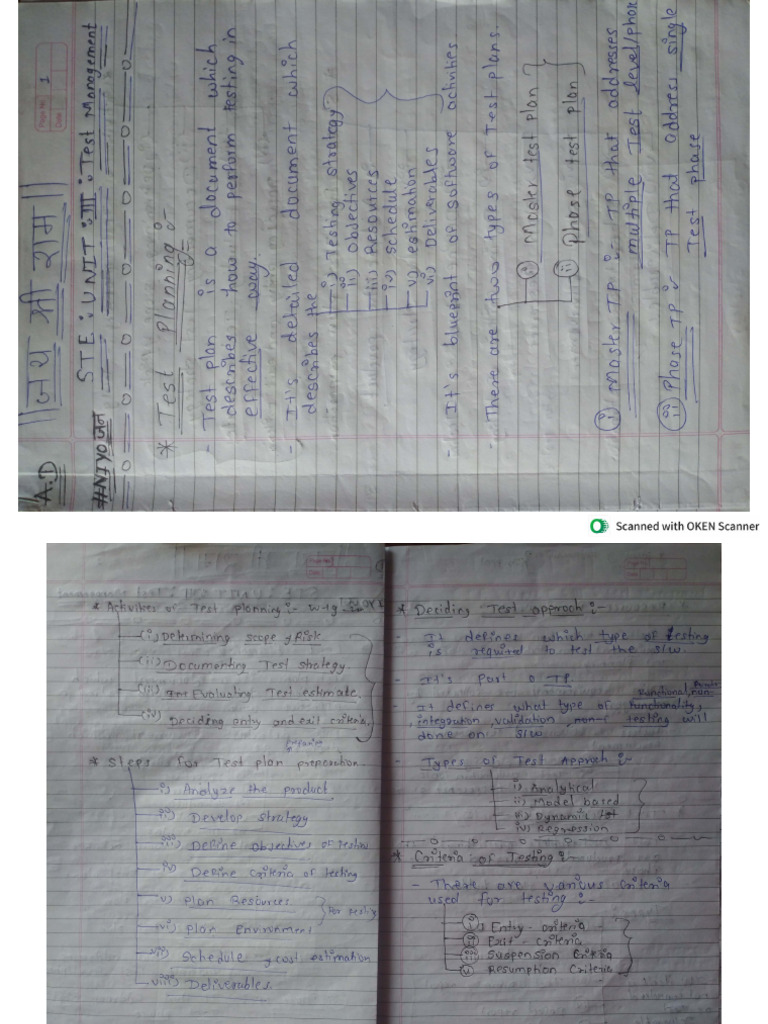 1
||जय श्री राम||
A.D
STE : UNIT : III : Test Management
#NIYOजन
* Test Planning :-
- Test plan is a document which
describes how to perform testing in
effective way.
- It's detailed document which
describes the
i) Testing strategy
ii) objectives
iii) Resources
iv) schedule
v) estimation
vi) Deliverables
- It's blueprint of software activities
- There are two types of Test plans.
i) Master test plan
ii) phase test plan
i) Master TP :- TP that addresses
multiple Test level/phase
ii) Phase TP :- TP that address single
Test phase
Scanned with OKEN Scanner
* Activities of Test planning :-
(i) Determining scope & Risk
(ii) Documenting Test strategy.
(iii) Evaluating Test estimate.
(iv) Deciding entry and exit criteria.
* Steps for Test plan preparation.
i) Analyze the product
ii) Develop strategy
iii) Define objectives of testing
iv) Define Criteria of testing
v) Plan Resources
for testing
vi) Plan Environment
vii) Schedule & cost estimation
viii) Deliverables.
* Deciding Test approach :-
- It defines which type of testing
is required to test the s/w.
- It's Part o TP
- It defines what type of Functionality,
Functional, non-
integration, validation, testing will
done on s/w
- Types of Test Approch :-
i) Analytical
ii) Model based
iii) Dynamic
iv) Regression
* Criteria of Testing :-
- There are various criteria
used for testing :-
i) Entry - criteria
ii) Exit - criteria
iii) Suspension Criteria
Resumption Criteria